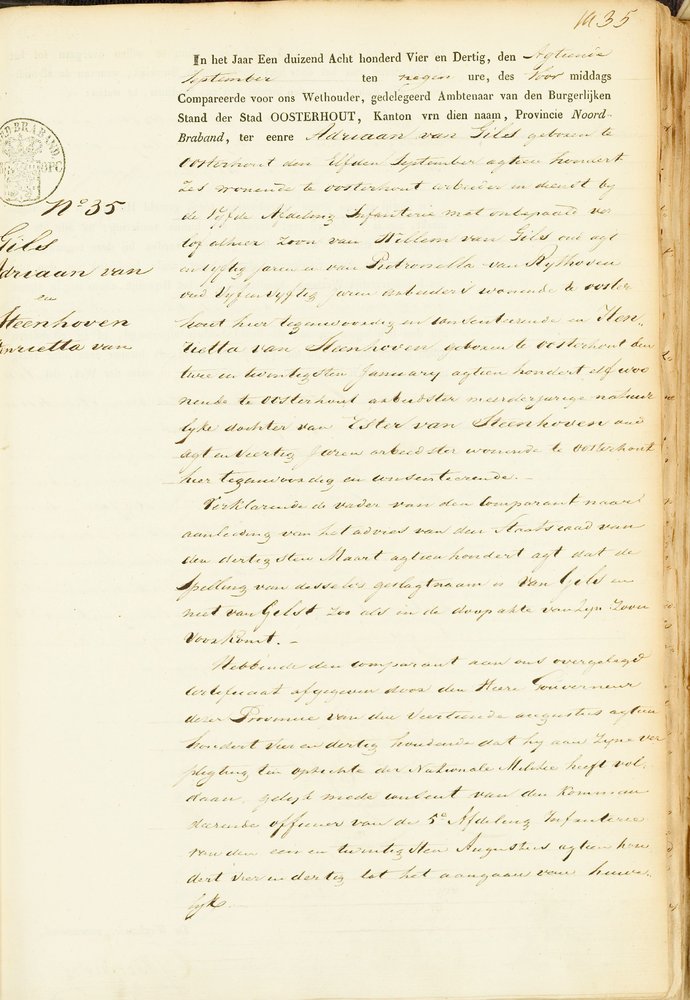 N 35
In het Jaar Een duizend Acht honderd Vier en Dertig, den Agtiende
September ten negen ure, des Voor middags
Compareerde voor ons Wethouder, gedelegeerd Ambtenaar van den Burgerlijken
Stand der Stad OOSTERHOUT, Kanton vrn dien naam, Provincie Noord-
Braband, ter eenre Adriaan van Gils geboren te
Oosterhout den Elfden September agtien hondert
zes wonende te oosterhout arbeider in dienst by
de Vyfde Afdeling Infanterie met onbepaald ver
lof alhier zoon van Willem van Gils oud agt
en vyftig jaren en van Pietronella van Rythoven
oud Vyf en vyftig jaren arbeiders wonende te ooster
hout hier tegenwoordig en consenteerende en Hen„
rietta van Steenhoven geboren te oosterhout den
twee en twintigsten January agtien hondert elf woo
nende te oosterhout arbeidster meerderjarige natuur
lyke dochter van Ester van Steenhoven oud
agt en Veertig Jaren arbeidster wonende te oosterhout
hier tegenwoordig en consenteerende. -
Verklarende de vader van den Comparant naar
aanleiding van het advies van den Staatsraad van
den dertigsten Maart agtien hondert agt dat de
spelling van deszelvs geslagtnaam is Van Gils en
niet van Gilst zoo als in de doopakte van zyn Zoon
voorkomt. -
Hebbende den comparant aan ons overgelegd
Certificaat afgegeven door den Heere Gouverneur
dezer Provincie van den Veertiende augustus agtien
hondert Vier en dertig houdende dat hy aan zyne ver
pligting ten opzichte der Nationale Militie heeft vol„
daan, gelyk mede consent van den Komman
deerende officier van de 5e Afdeling Infanterie
van den een en twintigsten Augustus agtien hon
dert vier en dertig tot het aangaan van huwe
lyk.
No 35
Gils
Adriaan van
en
Steenhoven
Henrietta van